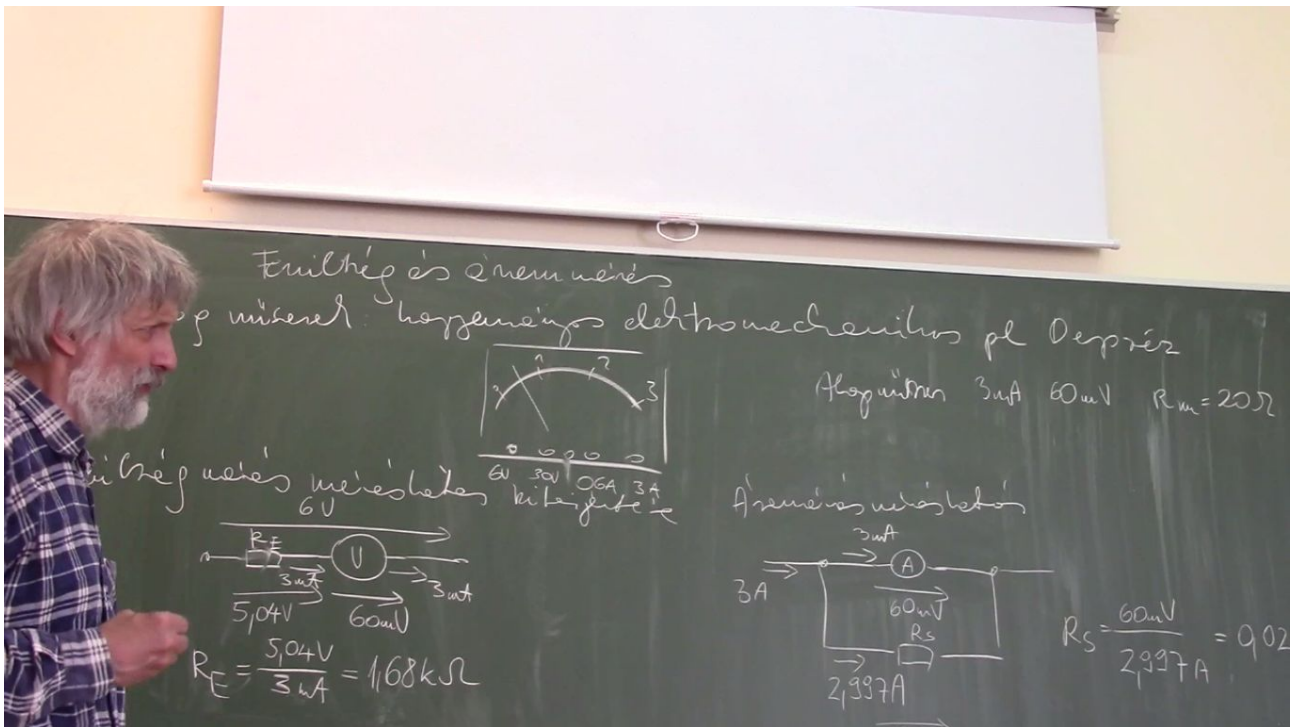 Feszültség és áram mérés
műszerek: hagyományos elektromechanikus pl Depréz
Alapműszer 3mA 60mV Rm = 20Ω
1 2 3
6V 30V 0,6A 3A
mérés méréshatár kiterjesztése
6V
RE V
3mA 3mA
5,04V 60mV
RE = 5,04V / 3mA = 1,68kΩ
Áram mérés méréshatár
3mA
3A A
60mV
RS
2,997A
RS = 60mV / 2,997A = 0,02